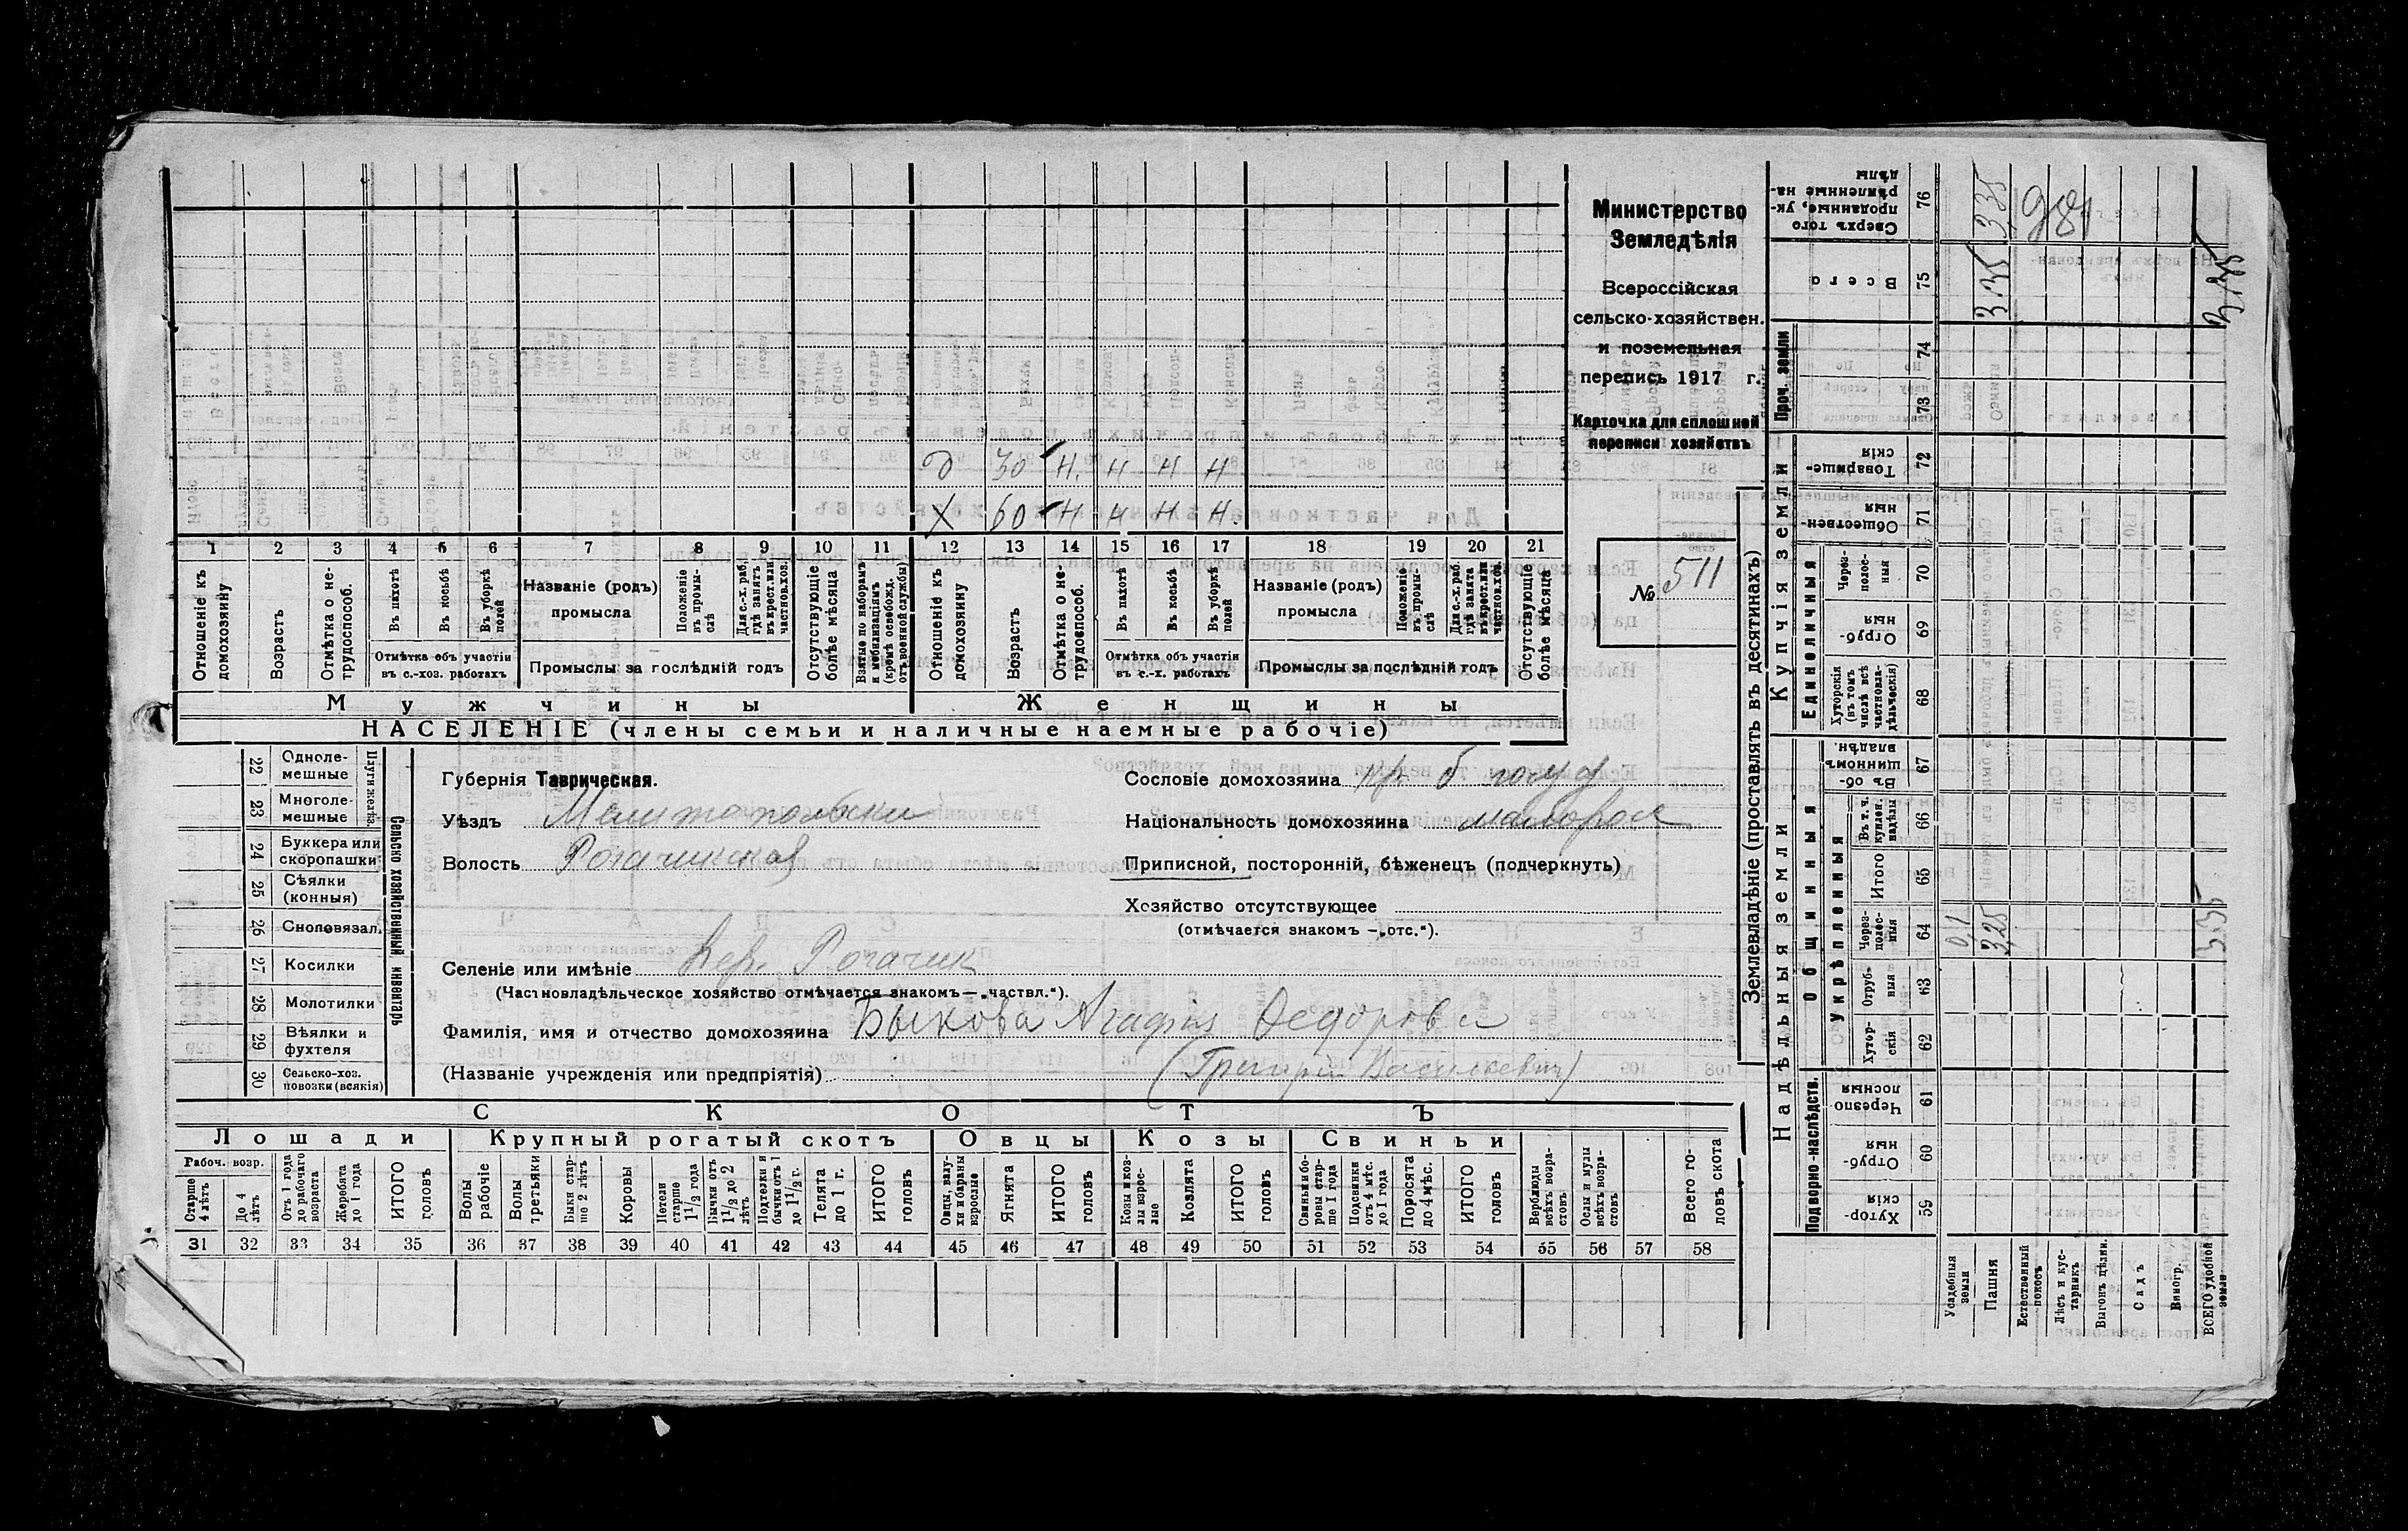 Министерство
Земледѣлія
Всероссійская
сельско-хозяйствен.
и поземельная
перепись 1917 г.
Карточка для сплошной
переписи хозяйствъ
№ 511
Д 30 Н. Н Н Н
Х 60 Н Н Н Н.
1 2 3 4 5 6 7 8 9 10 11 12 13 14 15 16 17 18 19 20 21
Отношеніе къ домохозяину
Возрастъ
Отмѣтка о не-трудоспособ.
Въ пахотѣ
Въ косьбѣ
Въ уборкѣ полей
Отмѣтка объ участіи въ с.-хоз. работахъ
Названіе (родъ) промысла
Положеніе въ промы-слѣ
Для с.-х. раб. гдѣ занятъ въ крест. или частнов. хоз.
Промыслы за послѣдній годъ
Отсутствующіе болѣе мѣсяца
Взятые по наборамъ и мобилизаціямъ (кромѣ освобожд. отъ военной службы)
Отношеніе къ домохозяину
Возрастъ
Отмѣтка о не-трудоспособ.
Въ пахотѣ
Въ косьбѣ
Въ уборкѣ полей
Отмѣтка объ участіи въ с.-х. работахъ
Названіе (родъ) промысла
Положеніе въ промы-слѣ
Для с.-х. раб. гдѣ занята въ крест. или частнов. хоз.
Промыслы за послѣдній годъ
Отсутствующіе болѣе мѣсяца
Мужчины Женщины
НАСЕЛЕНІЕ (члены семьи и наличные наемные рабочіе)
Сельско хозяйственный инвентарь
Плуги желѣз.
22 Одноле-мешные
23 Многоле-мешные
24 Буккера или скоропашки
25 Сѣялки (конныя)
26 Сноповязал.
27 Косилки
28 Молотилки
29 Вѣялки и фухтеля
30 Сельско-хоз. повозки (всякія)
Губернія Таврическая.
Уѣздъ
Волость Рогачикская
Сословіе домохозяина кр б
Національность домохозяина малоросс
Приписной, посторонній, бѣженецъ (подчеркнуть)
Хозяйство отсутствующее
(отмѣчается знакомъ —„отс.“).
Селеніе или имѣніе Верх. Рогачик
(Частновладѣльческое хозяйство отмѣчается знакомъ—„частвл.“).
Фамилія, имя и отчество домохозяина Быкова Агафія Федоровн
(Названіе учрежденія или предпріятія) (Григорій Васильевич)
СКОТЪ
Лошади Крупный рогатый скотъ Овцы Козы Свиньи
Рабоч. возр.
Старше 4 лѣтъ
До 4 лѣтъ
Отъ 1 года до рабочаго возраста
Жеребята до 1 года
ИТОГО головъ
Волы рабочіе
Волы третьяки
Быки стар-ше 2 лѣтъ
Коровы
Нетели старше 1 1/2 года
Бычки отъ 1 1/2 до 2 лѣтъ
Подтелки и бычки отъ 1 до 1 1/2 г.
Телята до 1 г.
ИТОГО головъ
Овцы, валу-хи и бараны взрослые
Ягнята
ИТОГО головъ
Козы и коз-лы взрос-лые
Козлята
ИТОГО головъ
Свиньи и бо-ровы стар-ше 1 года
Подсвинки отъ 4 мѣс. до 1 года
Поросята до 4 мѣс.
ИТОГО головъ
Верблюды всѣхъ возра-стовъ
Ослы и мулы всѣхъ возра-стовъ
Всего го-ловъ скота
31 32 33 34 35 36 37 38 39 40 41 42 43 44 45 46 47 48 49 50 51 52 53 54 55 56 57 58
Землевладѣніе (проставлять въ десятинахъ)
Надѣльныя земли Купчія земли Проч. земли
Подворно-наслѣдств.
Общинныя
Укрѣпленныя
Единоличныя
Сверхъ того проданные, ук-рѣпленные на-дѣлы 76
Всего 75
74
73
Товарище-скія 72
Обществен-ныя 71
Через-полос-ныя 70
Отруб-ныя 69
Хуторскія (въ томъ числѣ всѣ частновла-дѣльческія) 68
Въ об-щинномъ владѣн. 67
Въ т. ч. куплен. надѣлы 66
Итого 65
Через-полос-ныя 64
Отруб-ныя 63
Хутор-скія 62
Черезпо-лосныя 61
Отруб-ныя 60
Хутор-скія 59
Усадебныя земли
Пашня
Естественный покосъ
Лѣсъ и кус-тарникъ
Выгонъ цѣлин.
Садъ
Виногр.
ВСЕГО удобной земли
0,1
3,25
3,35
335
335